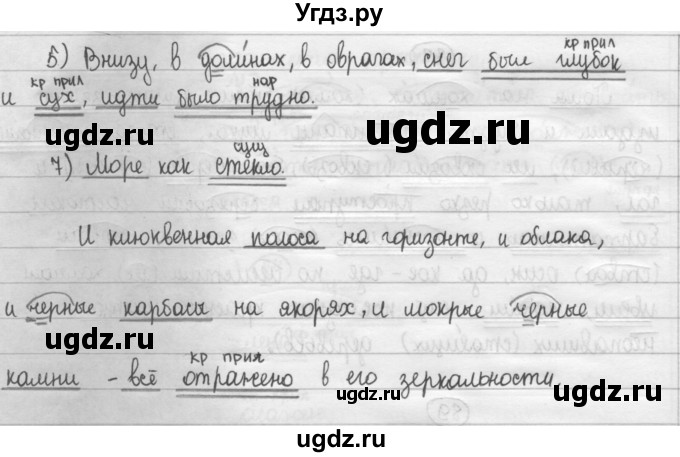 Угдз.ру
кр прил
5) Внизу, в долинах, в оврагах, снег был глубок
кр прил нар
и сух, идти было трудно.
ugdz.ru ugdz.ru
сущ
7) Море как стекло.
И клюквенная полоса на горизонте, и облака,
ugdz.ru
и черные карбасы на якорях, и мокрые черные
ugdz.ru ugdz.ru
кр прич
камни - всё отражено в его зеркальности
ugdz.ru
ugdz.ru